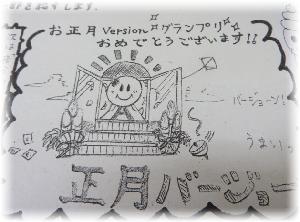 お正月versionグランプリ
おめでとうございます!!
バージョーン!
うまい
正月バージョー